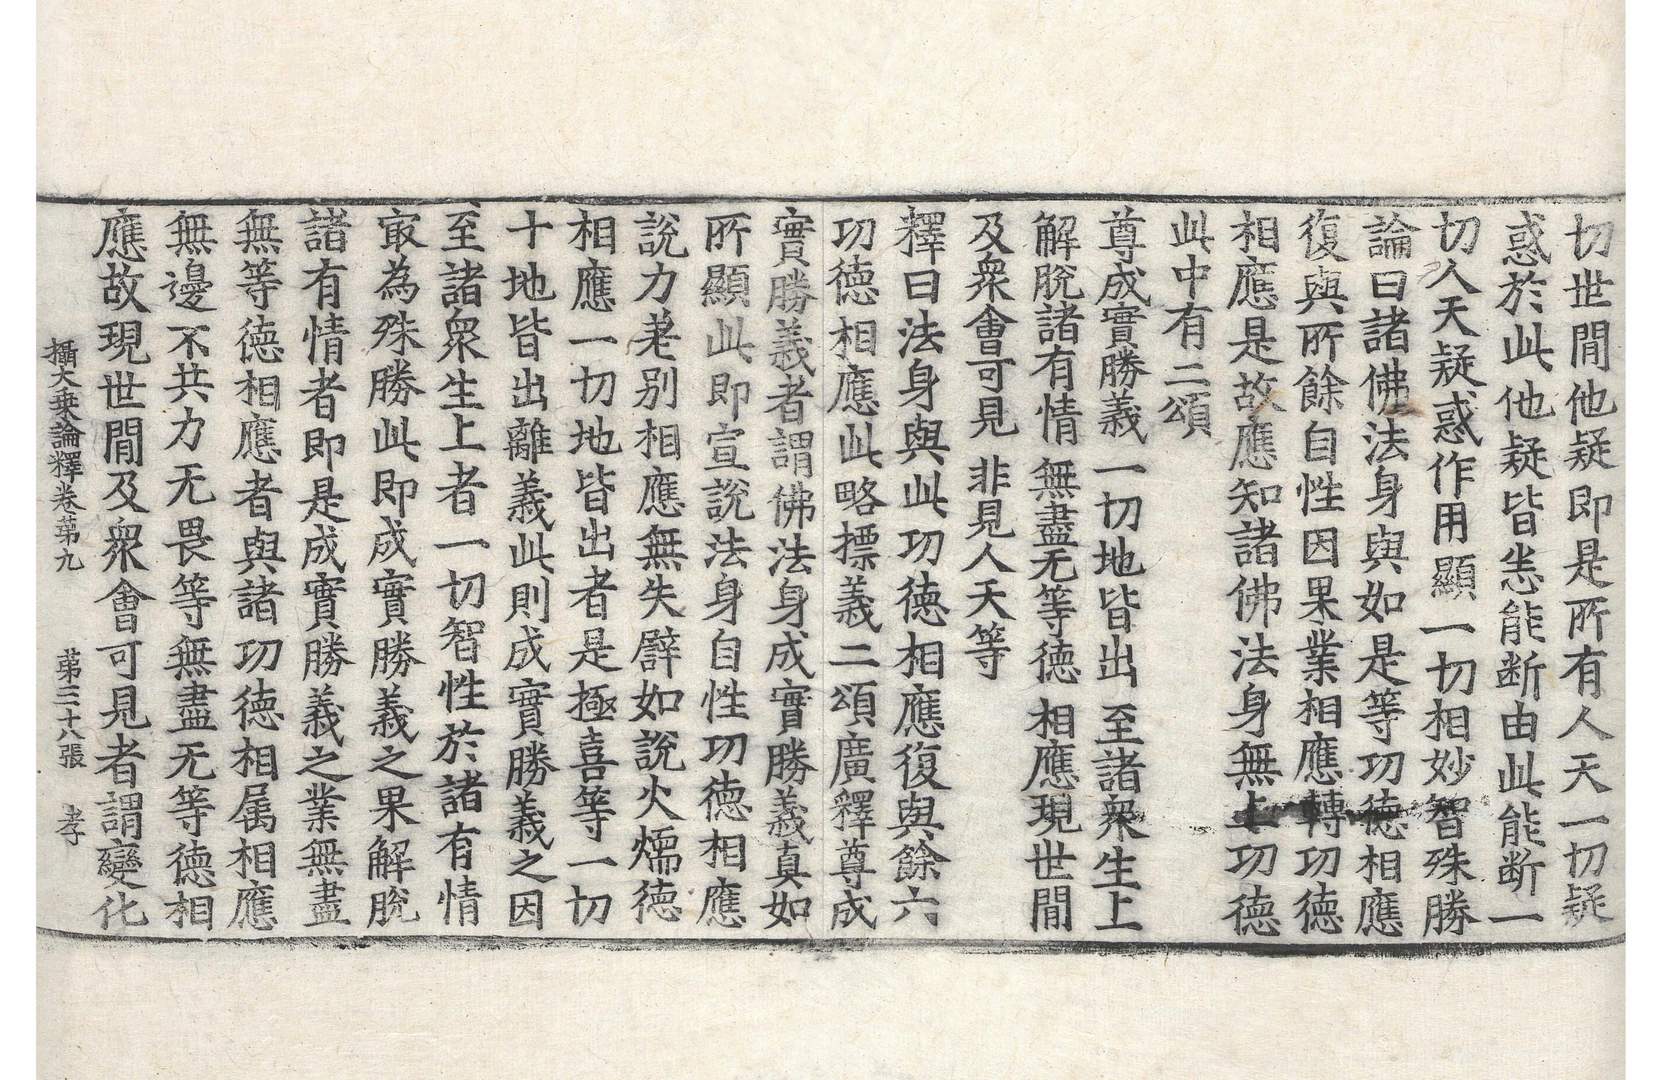 切世間他疑即是所有人天一切疑
惑於此他疑皆恙能断由此能断一
切人天疑惑作用顯一切相妙智殊勝
論曰諸佛法身與如是等功德相應
復與所餘自性因果業相應轉功德
相應是故應知諸佛法身無上功德
此中有二頌
尊成實勝義 一切地皆出 至諸衆生上
解脫諸有情 無盡无等德 相應現世間
及衆會可見 非見人天等
釋曰法身與此功德相應復與餘六
功德相應此略摽義二頌廣釋尊成
實勝義者謂佛法身成實勝義真如
所顯此即宣說法身自性功德相應
說力差别相應無失譬如說火煗德
相應一切地皆出者是極喜等一切
十地皆出離義此則成實勝義之因
至諸衆生上者一切智性於諸有情
㝡為殊勝此即成實勝義之果解脫
諸有情者即是成實勝義之業無盡
無等德相應者與諸功德相属相應
無邊不共力无畏等無盡无等德相
應故現世間及衆會可見者謂變化
攝大乗論釋卷第九 第三十八張 孝